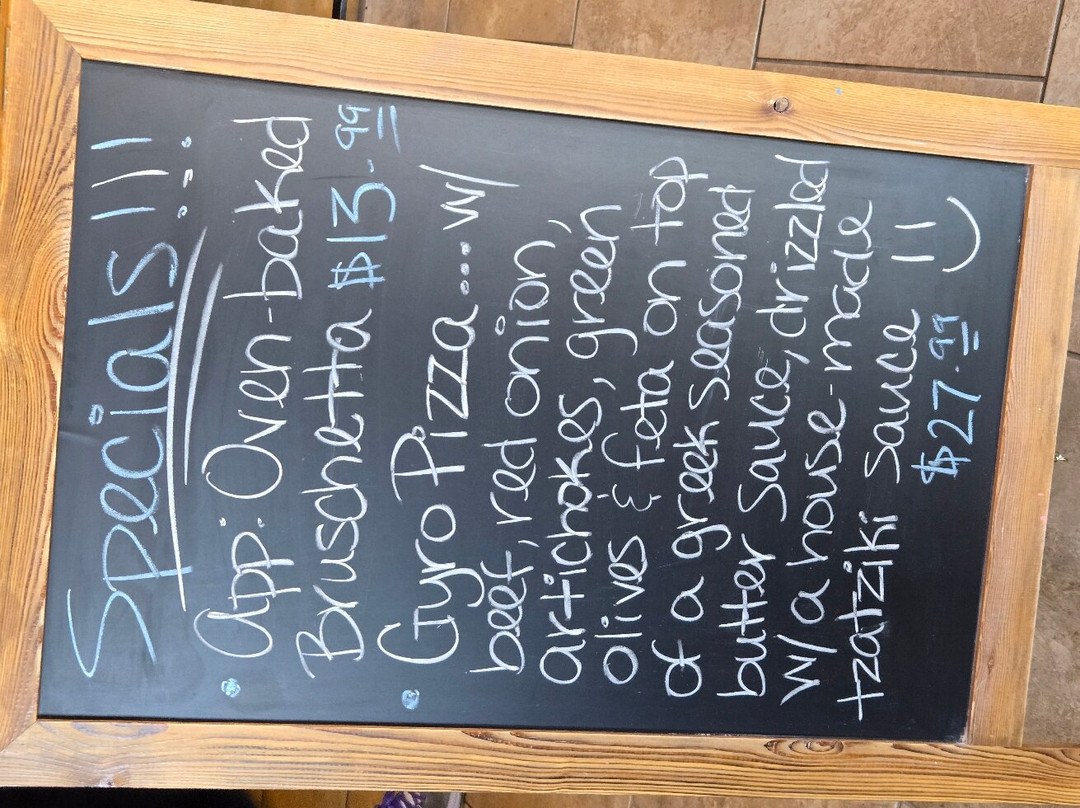 Specials!!!
• App: Oven-baked
Bruschetta $13.99
• Gyro Pizza... w/
beef, red onion,
artichokes, green
olives & feta on top
of a greek seasoned
butter sauce, drizzled
w/ a house-made
tzatziki sauce
$27.99 =)